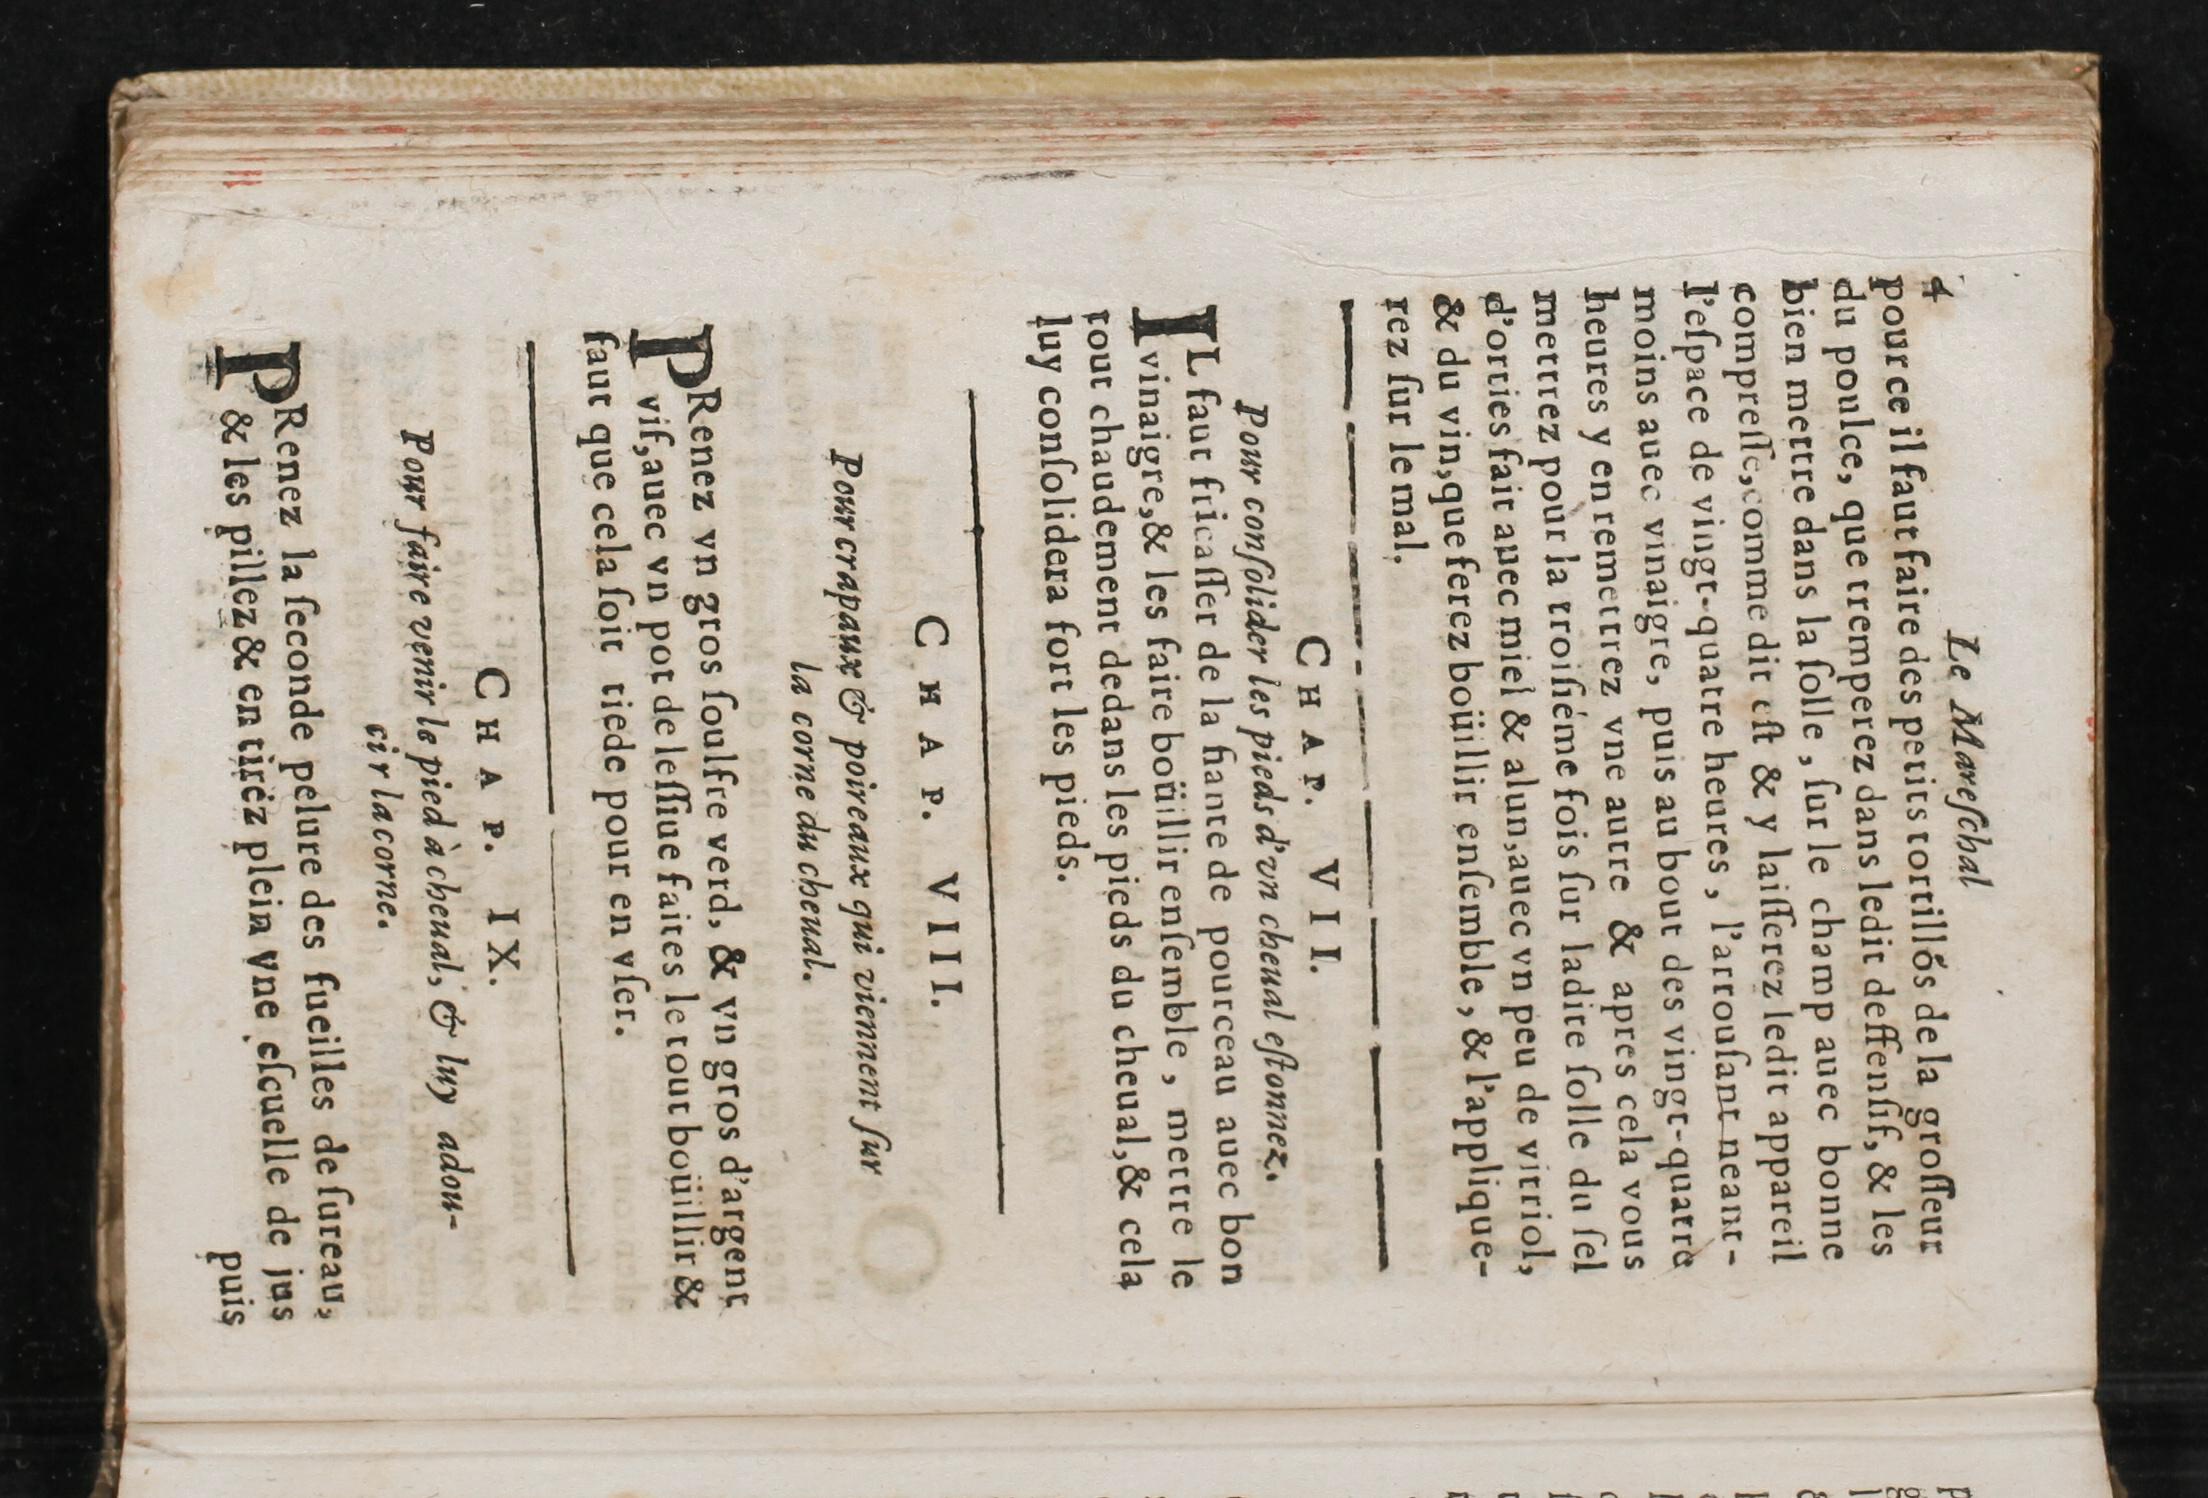 4 Le Mareſchal
pour ce il faut faire des petits tortillõs de la groſſeur
du poulce, que tremperez dans ledit deffenſif, & les
bien mettre dans la ſolle, ſur le champ auec bonne
compreſſe, comme dit eſt & y laiſſerez ledit appareil
l'eſpace de vingt-quatre heures, l'arrouſant neant-
moins auec vinaigre, puis au bout des vingt-quatre
heures y en remettrez vne autre & apres cela vous
mettrez pour la troiſiéme fois ſur ladite ſolle du ſel
d'orties fait auec miel & alun, auec vn peu de vitriol,
& du vin, que ferez boüillir enſemble, & l'applique-
rez ſur le mal.
CHAP. VII.
Pour conſolider les pieds d'vn cheual eſtonnez.
IL faut fricaſſer de la fiante de pourceau auec bon
vinaigre, & les faire boüillir enſemble, mettre le
tout chaudement dedans les pieds du cheual, & cela
luy conſolidera fort les pieds.
CHAP. VIII.
Pour crapaux & poireaux qui viennent ſur
la corne du cheual.
PRenez vn gros ſoulfre verd, & vn gros d'argent
vif, auec vn pot de leſſiue faites le tout boüillir &
faut que cela ſoit tiede pour en vſer.
CHAP. IX.
Pour faire venir le pied à cheual, & luy adou-
cir la corne.
PRenez la ſeconde pelure des fueilles de ſureau,
& les pillez & en tirez plein vne eſcuelle de jus
puis